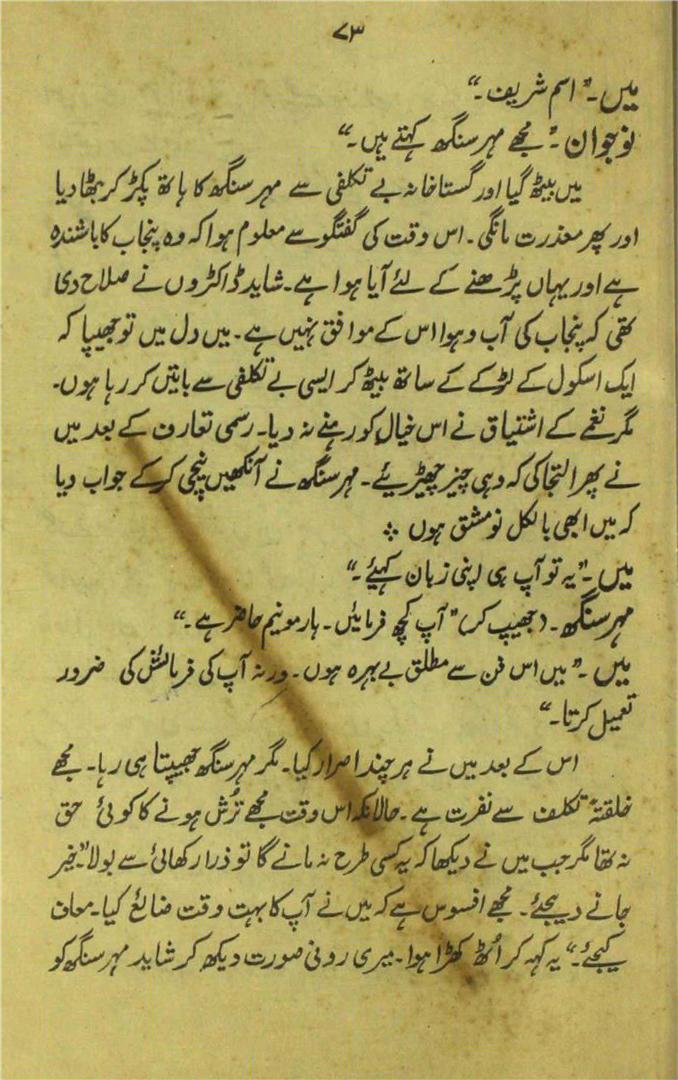 ۷۳
میں۔ "اسم شریف۔"
نوجوان۔ "مجھے مہر سنگھ کہتے ہیں۔"
میں بیٹھ گیا اور گستاخانہ بے تکلفی سے مہر سنگھ کا ہاتھ پکڑ کر بٹھا دیا
اور پھر معذرت مانگی۔ اس وقت کی گفتگو سے معلوم ہوا کہ وہ پنجاب کا باشندہ
ہے اور یہاں پڑھنے کے لئے آیا ہوا ہے۔ شاید ڈاکٹروں نے صلاح دی
تھی کہ پنجاب کی آب و ہوا اس کے موافق نہیں ہے۔ میں دل میں تو جھیپا کہ
ایک اسکول کے لڑکے کے ساتھ بیٹھ کر ایسی بے تکلفی سے باتیں کر رہا ہوں۔
مگر نغمے کے اشتیاق نے اس خیال کو رہنے نہ دیا۔ رسمی تعارف کے بعد میں
نے پھر التجا کی کہ وہی چیز چھیڑیئے۔ مہر سنگھ نے آنکھیں نیچی کر کے جواب دیا
کہ میں ابھی بالکل نو مشق ہوں ؞
میں۔ "یہ تو آپ ہی اپنی زبان کہئے۔"
مہر سنگھ۔ (جھیپ کر) "آپ کچھ فرمائیں۔ ہارمونیم حاضر ہے۔"
میں۔ "میں اس فن سے مطلق بے بہرہ ہوں۔ ورنہ آپ کی فرمائش کی ضرور
تعمیل کرتا۔"
اس کے بعد میں نے ہر چند اصرار کیا۔ مگر مہر سنگھ جھیپتا ہی رہا۔ مجھے
خلقتہً تکلف سے نفرت ہے۔ حالانکہ اس وقت مجھے ترش ہونے کا کوئی حق
نہ تھا مگر جب میں نے دیکھا کہ یہ کسی طرح نہ مانے گا تو ذرا رکھائی سے بولا "خیر
جانے دیجئے۔ مجھے افسوس ہے کہ میں نے آپ کا بہت وقت ضائع کیا۔ معاف
کیجئے۔" یہ کہہ کر اُٹھ کھڑا ہوا۔ میری رونی صورت دیکھ کر شاید مہر سنگھ کو